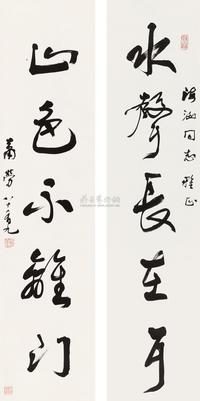 水聲長在耳
海涵同志雅正
山色不離門
蕭勞八十有九